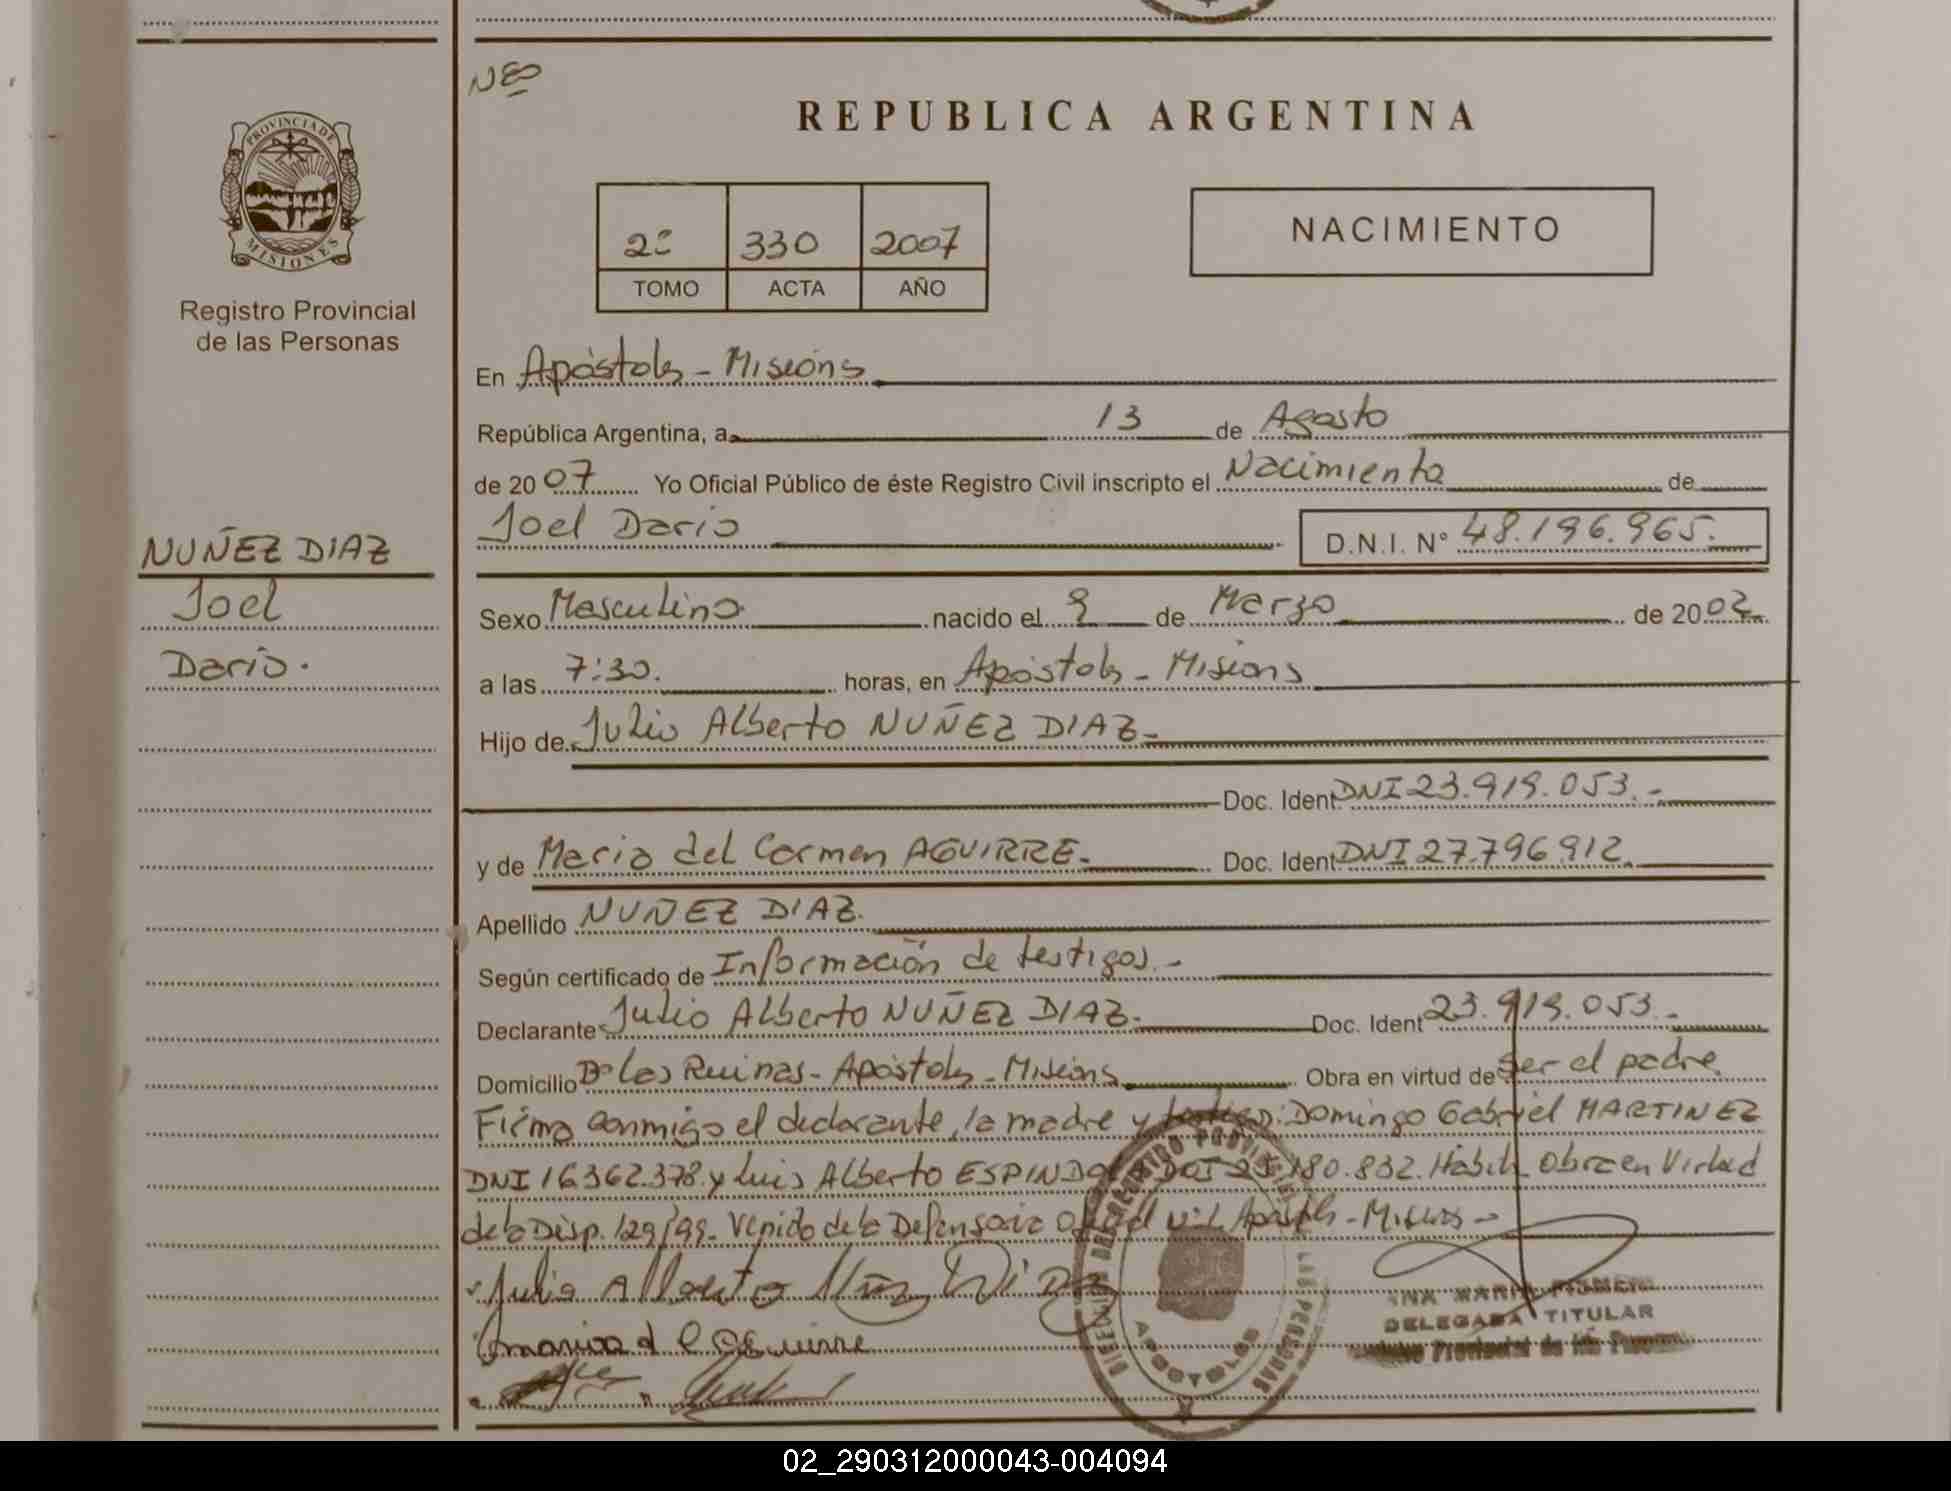 NEO
PROVINCIA DE
MISIONES
Registro Provincial
de las Personas
NUÑEZ DIAZ
Joel
Dario.
REPUBLICA ARGENTINA
2º 330 2007
TOMO ACTA AÑO
NACIMIENTO
En Apóstoles - Misiones
República Argentina, a 13 de Agosto
de 2007 Yo Oficial Público de éste Registro Civil inscripto el Nacimiento de
Joel Dario D.N.I. N° 48.196.965.
Sexo Masculino nacido el 9 de Marzo de 2002
a las 7:30. horas, en Apóstoles - Misiones
Hijo de Julio Alberto NUÑEZ DIAZ-
Doc. Ident DNI 23.919.053.-
y de Maria del Carmen AGUIRRE- Doc. Ident DNI 27.796.912
Apellido NUÑEZ DIAZ.
Según certificado de Información de testigos.-
Declarante Julio Alberto NUÑEZ DIAZ- Doc. Ident 23.919.053.-
Domicilio Bº Las Ruinas - Apóstoles - Misiones Obra en virtud de Ser el padre.
Firma conmigo el declarante, la madre y testigos: Domingo Gabriel MARTINEZ
DNI 16.362.378. y Luis Alberto ESPINDOLA 180.832. Habil. Obra en Virtud
de la Disp. 129/99. Venido de la Defensoria Oficial Apóstoles - Misiones -
Julio Alberto Nuñez Diaz
Maria d C Aguirre
ANA MARIA
DELEGADA TITULAR
Registro Provincial de las Personas
DIRECCION DEL REGISTRO PROVINCIAL DE LAS PERSONAS
APOSTOLES
02_290312000043-004094